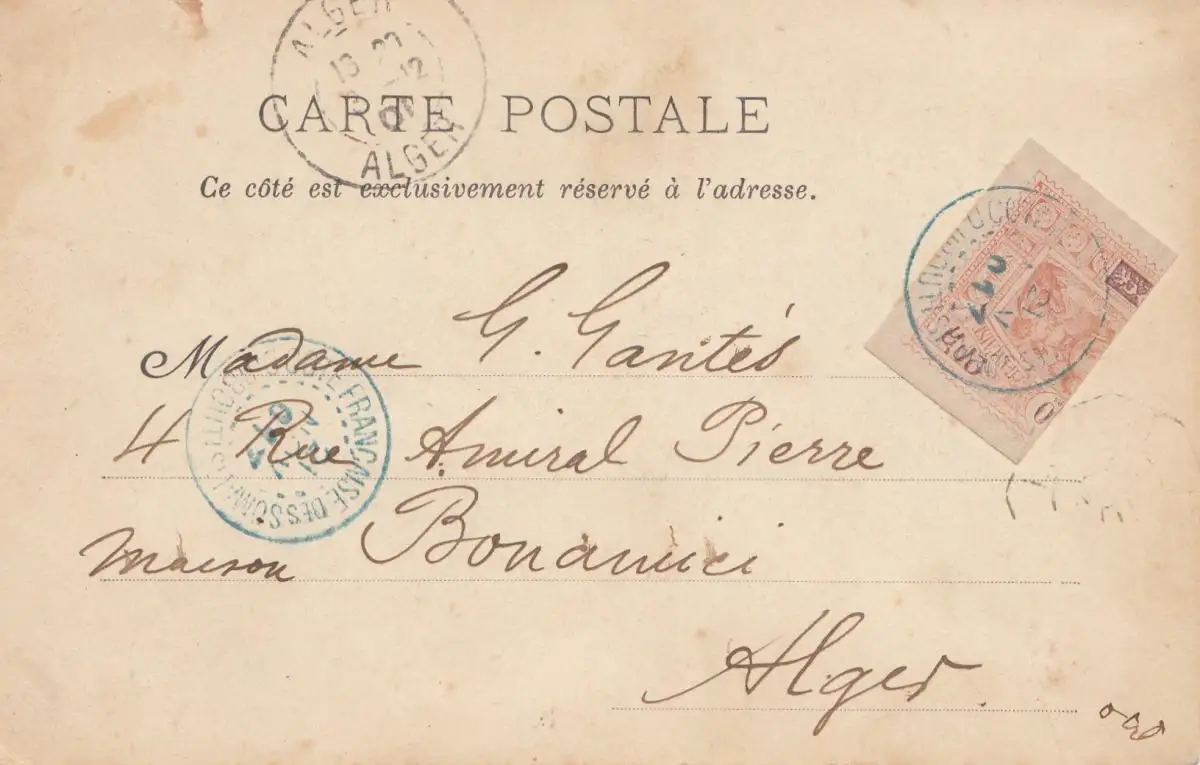 ALGER
13 20
12
01
ALGER
CARTE POSTALE
Ce côté est exclusivement réservé à l'adresse.
Madame G. Gantès
4 Rue Amiral Pierre
maison Bonamici
Alger
DJIBOUTI
12
0
DJIBOUTI
FRANÇAISE DES SOMALIS